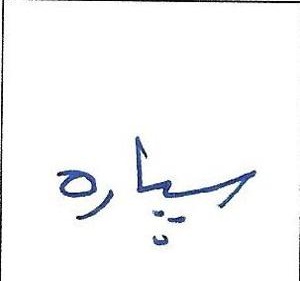 سپاره